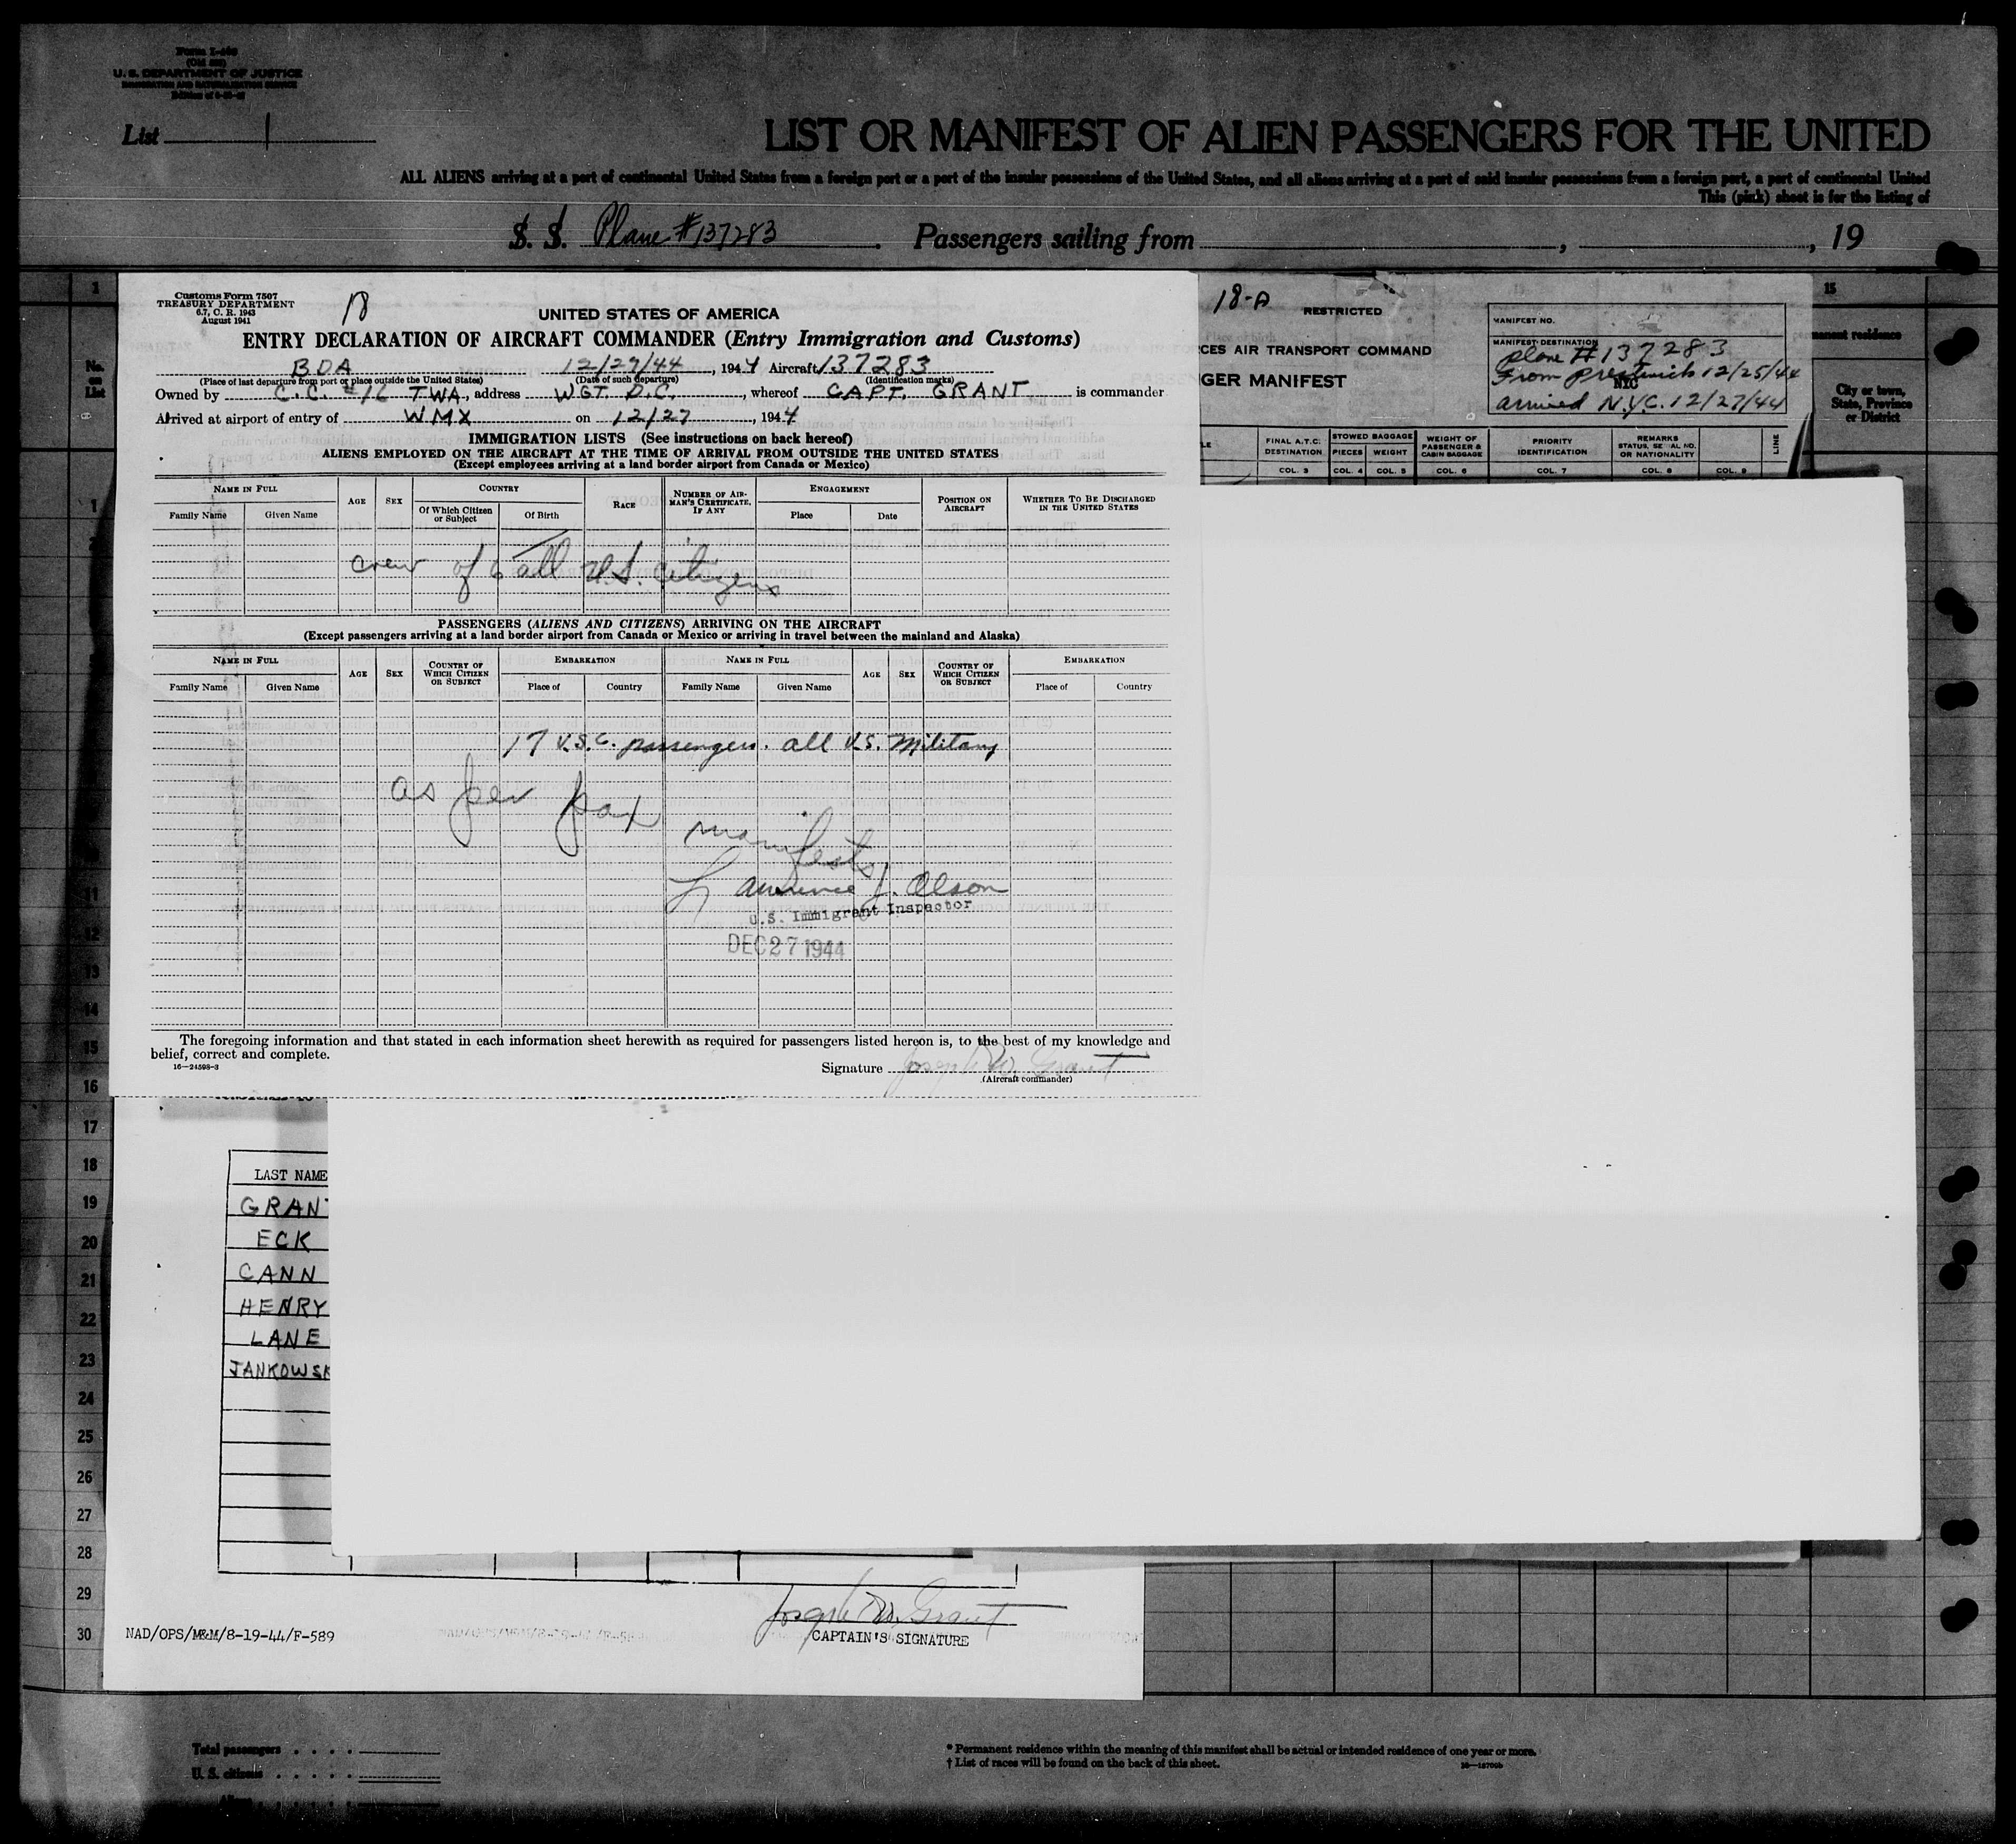 Form I-466
(Old 500)
U. S. DEPARTMENT OF JUSTICE
IMMIGRATION AND NATURALIZATION SERVICE
List 1
LIST OR MANIFEST OF ALIEN PASSENGERS FOR THE UNITED
ALL ALIENS arriving at a port of continental United States from a foreign port or a port of the insular possessions of the United States, and all aliens arriving at a port of said insular possessions from a foreign port, a port of continental United
This (pink) sheet is for the listing of
S. S. Plane #137283 Passengers sailing from , , 19
Customs Form 7507
TREASURY DEPARTMENT
6.7, C. R. 1943
August 1941
18
UNITED STATES OF AMERICA
ENTRY DECLARATION OF AIRCRAFT COMMANDER (Entry Immigration and Customs)
BDA 12/27/44, 1944 Aircraft 137283
(Place of last departure from port or place outside the United States) (Date of such departure) (Identification marks)
Owned by C.C. #16 TWA, address WGT. D.C., whereof CAPT. GRANT is commander
Arrived at airport of entry of WMX on 12/27, 1944
IMMIGRATION LISTS (See instructions on back hereof)
ALIENS EMPLOYED ON THE AIRCRAFT AT THE TIME OF ARRIVAL FROM OUTSIDE THE UNITED STATES
(Except employees arriving at a land border airport from Canada or Mexico)
NAME IN FULL AGE SEX COUNTRY RACE NUMBER OF AIRMAN'S CERTIFICATE, IF ANY ENGAGEMENT POSITION ON AIRCRAFT WHETHER TO BE DISCHARGED IN THE UNITED STATES
Family Name Given Name Of Which Citizen or Subject Of Birth Place Date
Crew of 6 all U.S. Citizens
PASSENGERS (ALIENS AND CITIZENS) ARRIVING ON THE AIRCRAFT
(Except passengers arriving at a land border airport from Canada or Mexico or arriving in travel between the mainland and Alaska)
NAME IN FULL AGE SEX COUNTRY OF WHICH CITIZEN OR SUBJECT EMBARKATION NAME IN FULL AGE SEX COUNTRY OF WHICH CITIZEN OR SUBJECT EMBARKATION
Family Name Given Name Place of Country Family Name Given Name Place of Country
17 U.S.C. passengers. all U.S. Military
as per pax manifests
Lawrence J. Olson
U.S. Immigrant Inspector
DEC 27 1944
The foregoing information and that stated in each information sheet herewith as required for passengers listed hereon is, to the best of my knowledge and
belief, correct and complete.
16—24598-3
Signature Joseph W. Grant
(Aircraft commander)
18-A
RESTRICTED
CES AIR TRANSPORT COMMAND
GER MANIFEST
MANIFEST NO.
MANIFEST DESTINATION
NYC
Plane #137283
From Prestwick 12/25/44
arrived N.Y.C. 12/27/44
LE FINAL A.T.C. DESTINATION STOWED BAGGAGE PIECES WEIGHT WEIGHT OF PASSENGER & CABIN BAGGAGE PRIORITY IDENTIFICATION REMARKS STATUS, SERIAL NO. OR NATIONALITY LINE
COL. 3 COL. 4 COL. 5 COL. 6 COL. 7 COL. 8 COL. 9
15
manent residence
City or town, State, Province or District
1
No. on List
1
2
11
12
13
14
15
16
17
18
19
20
21
22
23
24
25
26
27
28
29
30
LAST NAME
GRANT
ECK
CANN
HENRY
LANE
JANKOWSK
Joseph W. Grant
CAPTAIN'S SIGNATURE
NAD/OPS/M&M/8-19-44/F-589
Total passengers
U. S. citizens
Aliens
* Permanent residence within the meaning of this manifest shall be actual or intended residence of one year or more.
† List of races will be found on the back of this sheet.